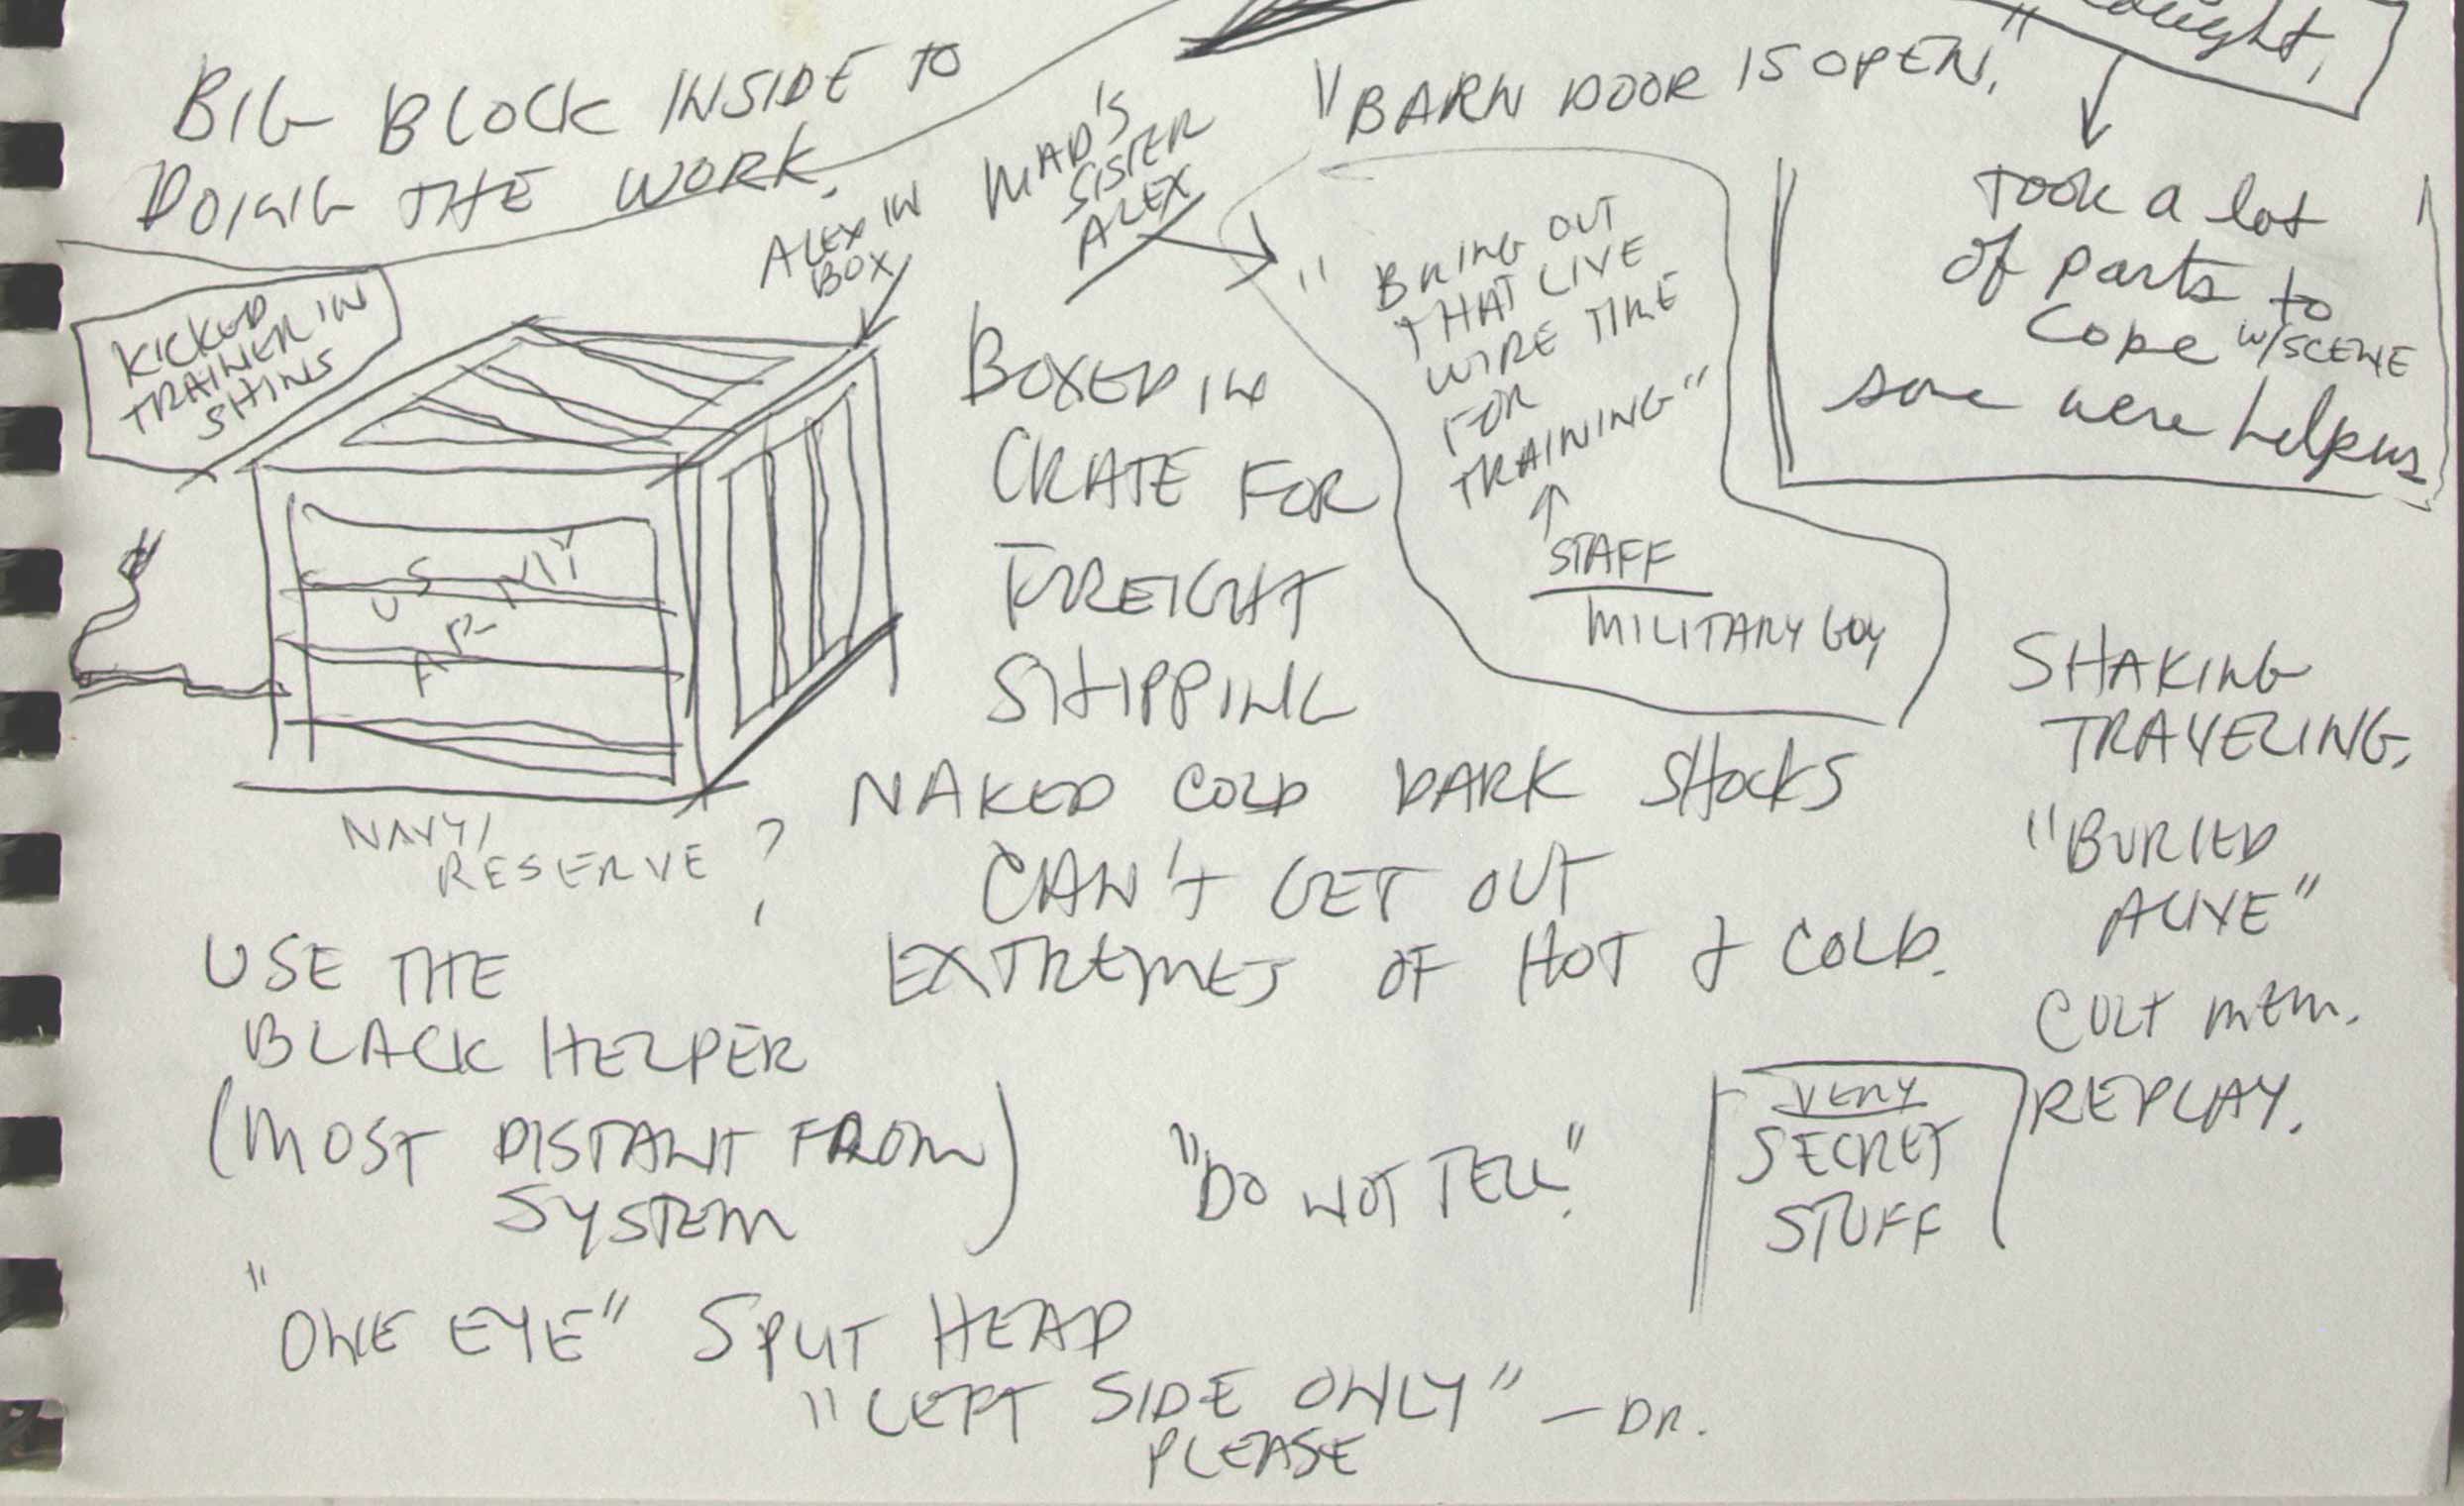 BIG BLOCK INSIDE TO
DOING THE WORK.
ALEX IN
BOX
MAD'S
SISTER
ALEX
"BARN DOOR IS OPEN."
KICKED
TRAINER IN
SHINS
US
ARMY
NAVY/
RESERVE ?
BOXED IN
CRATE FOR
FREIGHT
SHIPPING
NAKED COLD DARK SHOCKS
CAN'T GET OUT
EXTREMES OF HOT & COLD.
" BRING OUT
THAT LIVE
WIRE TIME
FOR
TRAINING"
STAFF
MILITARY GUY
took a lot
of parts to
cope w/SCENE
some were helpers
SHAKING
TRAVELING.
"BURIED
ALIVE"
CULT MEM.
REPLAY.
USE THE
BLACK HELPER
(MOST DISTANT FROM)
SYSTEM
"DO NOT TELL."
VERY
SECRET
STUFF
"ONE EYE" SPLIT HEAD
"LEFT SIDE ONLY" – DR.
PLEASE